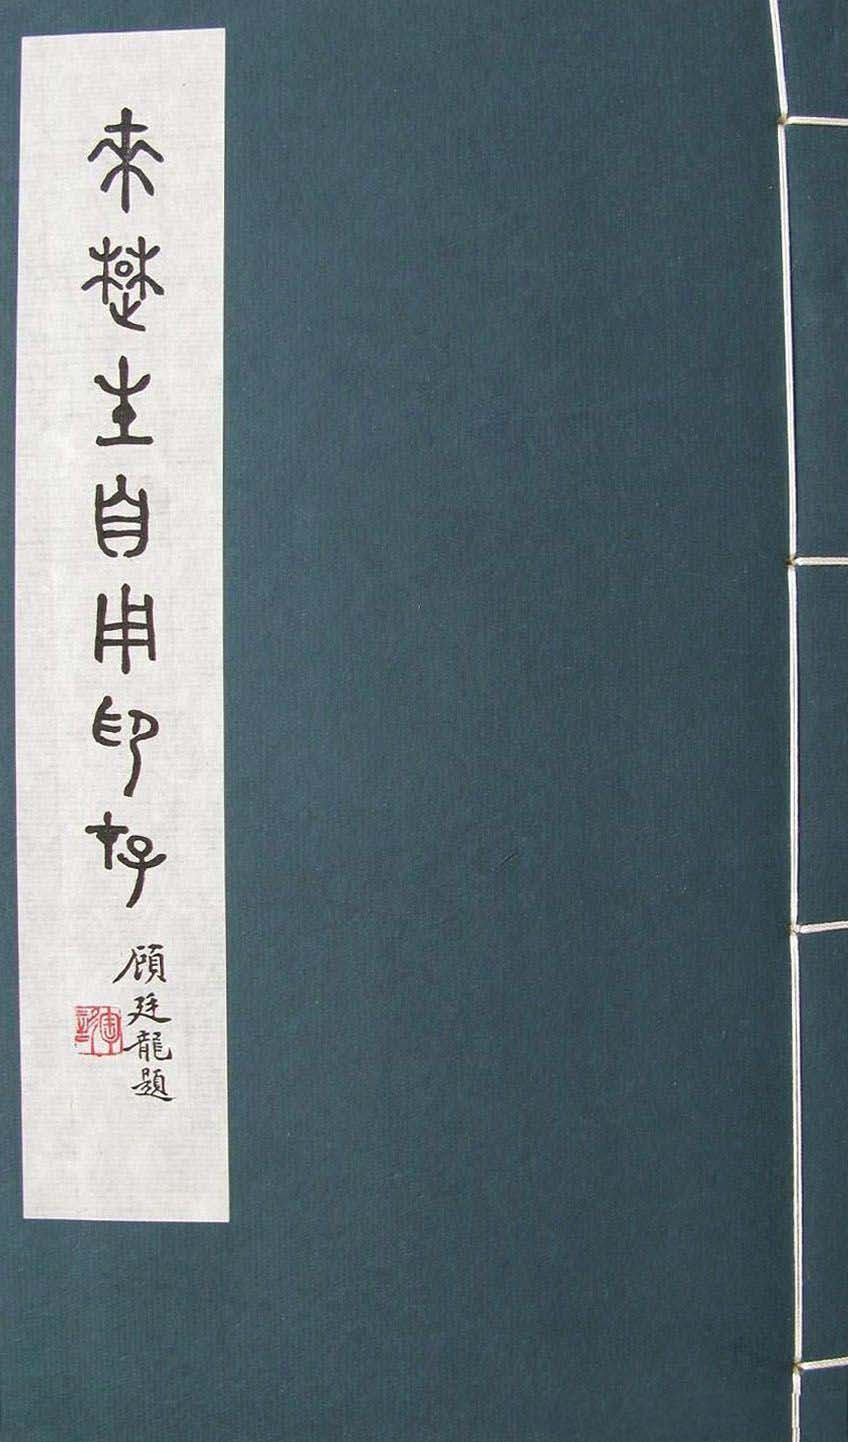 来楚生自用印存
顧廷龍題